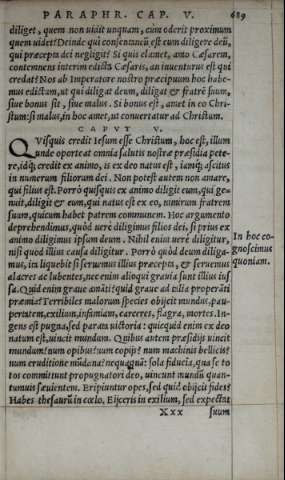 PARAPHR. CAP. V. 689
diliget, quem non uidit unquam, cum oderit proximum
quem uidet? Deinde qui consentaneũ est eum diligere deũ,
qui præcepta dei negligit? Si quis clamet, amo Cæsarem,
contemnens interim edicta Cæsaris, an inuenturus est qui
credat? Nos ab Imperatore nostro præcipuum hoc habe-
mus edictum, ut qui diligat deum, diligat & fratrẽ suum,
siue bonus sit, siue malus. Si bonus est, amet in eo Chri-
stum: si malus, in hoc amet, ut conuertatur ad Christum.
CAPVT V.
QVisquis credit Iesum esse Christum, hoc est, illum
unde oporteat omnia salutis nostræ præsidia pete-
re, idq; credit ex animo, is ex deo natus est, iamq; ascitus
in numerum filiorum dei. Non potest autem non amare,
qui filius est. Porrò quisquis ex animo diligit eum, qui ge-
nuit, diligit & eum, qui natus est ex eo, nimirum fratrem
suum, quicum habet patrem communem. Hoc argumento
deprehendimus, quòd uerè diligimus filios dei, si prius ex
animo diligimus ipsum deum. Nihil enim uerè diligitur,
nisi quod illius causa diligitur. Porrò quòd deum diliga-
mus, ita liquebit si seruemus illius præcepta, & seruemus
alacres ac lubentes, nec enim alioqui grauia sunt illius ius
sa. Quid enim graue amãti? quid graue ad talia properãti
præmia? Terribiles malorum species obijcit mundus, pau-
pertatem, exilium, infamiam, carceres, flagra, mortes. In-
gens est pugna, sed parata uictoria: quicquid enim ex deo
natum est, uincit mundum. Quibus autem præsidijs uincit
mundum? num opibus? num copijs? num machinis bellicis?
num eruditione mũdana? nequaquã: sola fiducia, qua se to
tos committunt propugnatori deo, uincunt mundũ quan-
tumuis sæuientem. Eripiuntur opes, sed quid obijcit fides?
Habes thesaurũ in cœlo. Eijceris in exilium, sed expectat
Xxx suum
In hoc co-
gnoscimus
quoniam.